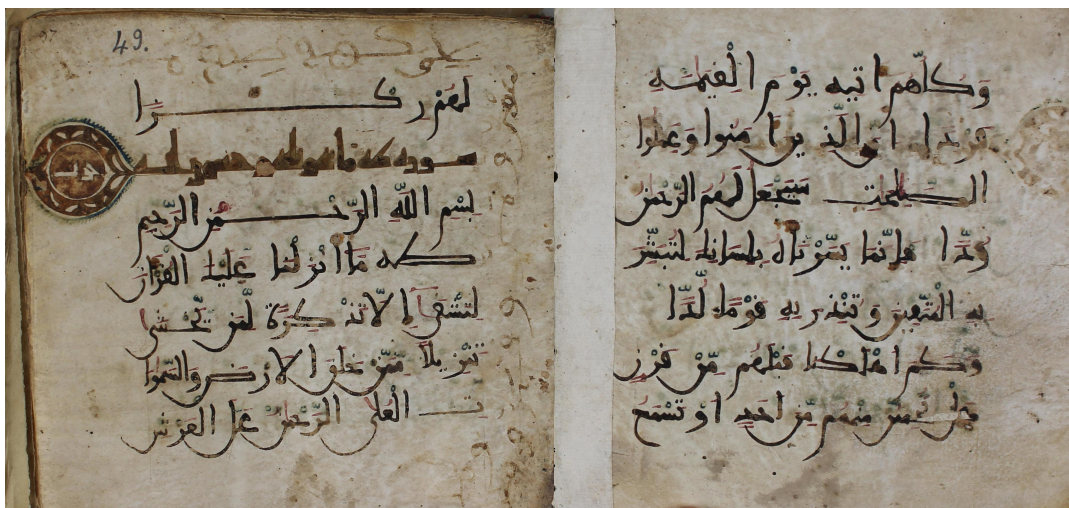 وَكُلُّهُمْ اتِيهِ يَوْمَ الْقِيَمَةِ
فَرْدًا اِنَّ الَّذِينَ امَنُوا وَعَمِلُوا
الصَّلِحَتِ سَيَجْعَلُ لَهُمُ الرَّحْمَنُ
وُدًّا فَإِنَّمَا يَسَّرْنَاهُ بِلِسَانِكَ لِتُبَشِّرَ
بِهِ الْمُتَّقِينَ وَتُنْذِرَ بِهِ قَوْمًا لُّدًّا
وَكَمْ اَهْلَكْنَا قَبْلَهُم مِّن قَرْنٍ
هَلْ تُحِسُّ مِنْهُم مِّنَ اَحَدٍ اَوْ تَسْمَعُ
49.
لَهُمْ رِكْزًا
سورة طه
بِسْمِ اللَّهِ الرَّحْمَنِ الرَّحِيمِ
طه مَا اَنْزَلْنَا عَلَيْكَ الْقُرْانَ
لِتَشْقَى اِلَّا تَذْكِرَةً لِّمَنْ يَّخْشَى
تَنْزِيلًا مِّمَّنْ خَلَقَ الَارْضَ وَالسَّمَوَا
تِ الْعُلَى الرَّحْمَنُ عَلَى الْعَرْشِ